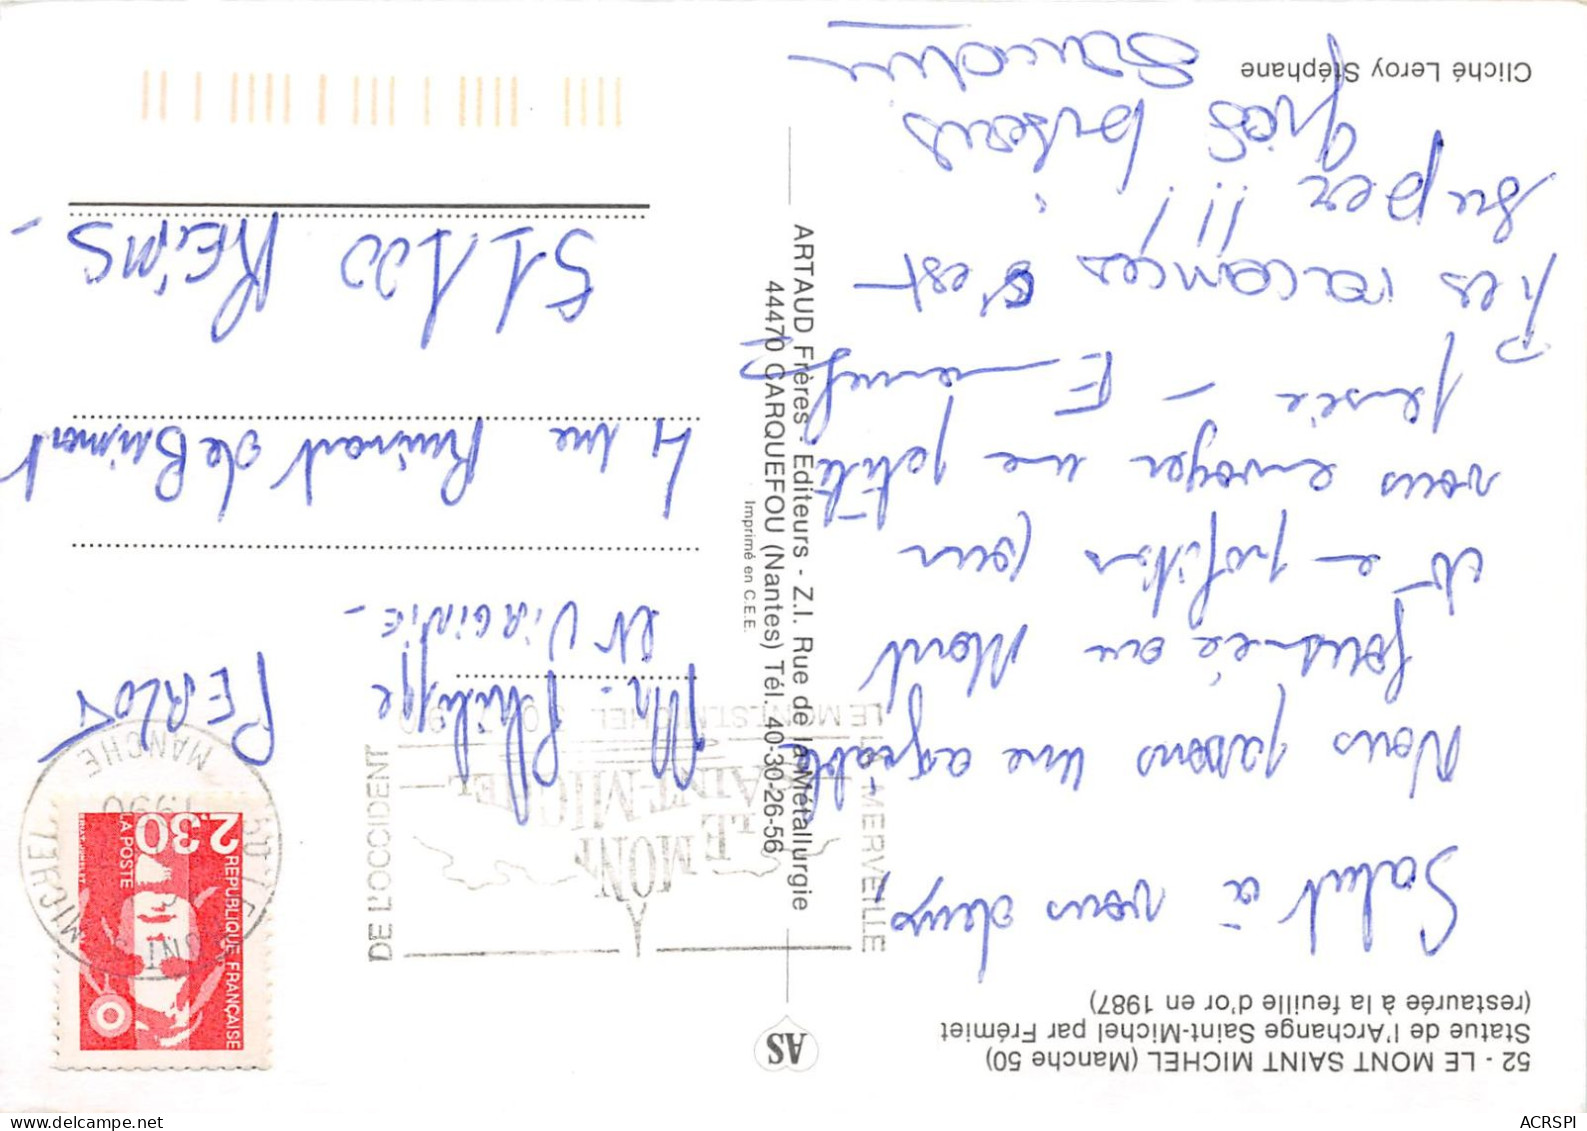 52 - LE MONT SAINT MICHEL (Manche 50)
Statue de l'Archange Saint-Michel par Frémiet
(restaurée à la feuille d'or en 1987)
Salut à vous deux,
Nous passons une agréable
journée au Mont
et en profitons pour
vous envoyer une petite
pensée -
Les vacances c'est
super !!!
gros bisous
Cliché Leroy Stéphane
AS
ARTAUD Frères - Editeurs - Z.I. Rue de la Métallurgie
44470 CARQUEFOU (Nantes) Tél. 40-30-26-56
Imprimé en C.E.E.
LE MONT
SAINT-MICHEL
MERVEILLE
DE L'OCCIDENT
LE MONT ST MICHEL
MANCHE
1990
REPUBLIQUE FRANÇAISE
2,30
LA POSTE
Mr Philippe PERLOT
et VIRGINIE -
4 rue Ruinart de Brimont
51100 REIMS -
ACRSPI